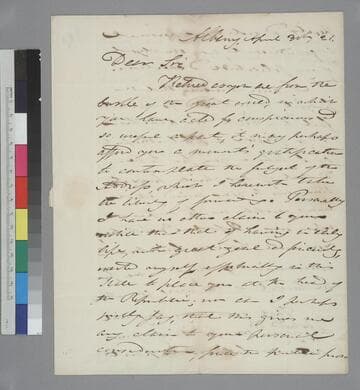 Albany April
Dear Sir
Retired as you are from the
bustle of the great world in which
you have acted so conspicuous &
so useful a part, it may perhaps
afford you a moments gratification
to contemplate the subject of the
Address which I herewith take
the liberty of sending you. Personally
I have no other claim to your
notice than that of having in early
life, with great zeal &
myself in this
State to place you at the head of
the Republic, nor can I perhaps
justly say, that this gives me
any claim to your personal
consideration, since the